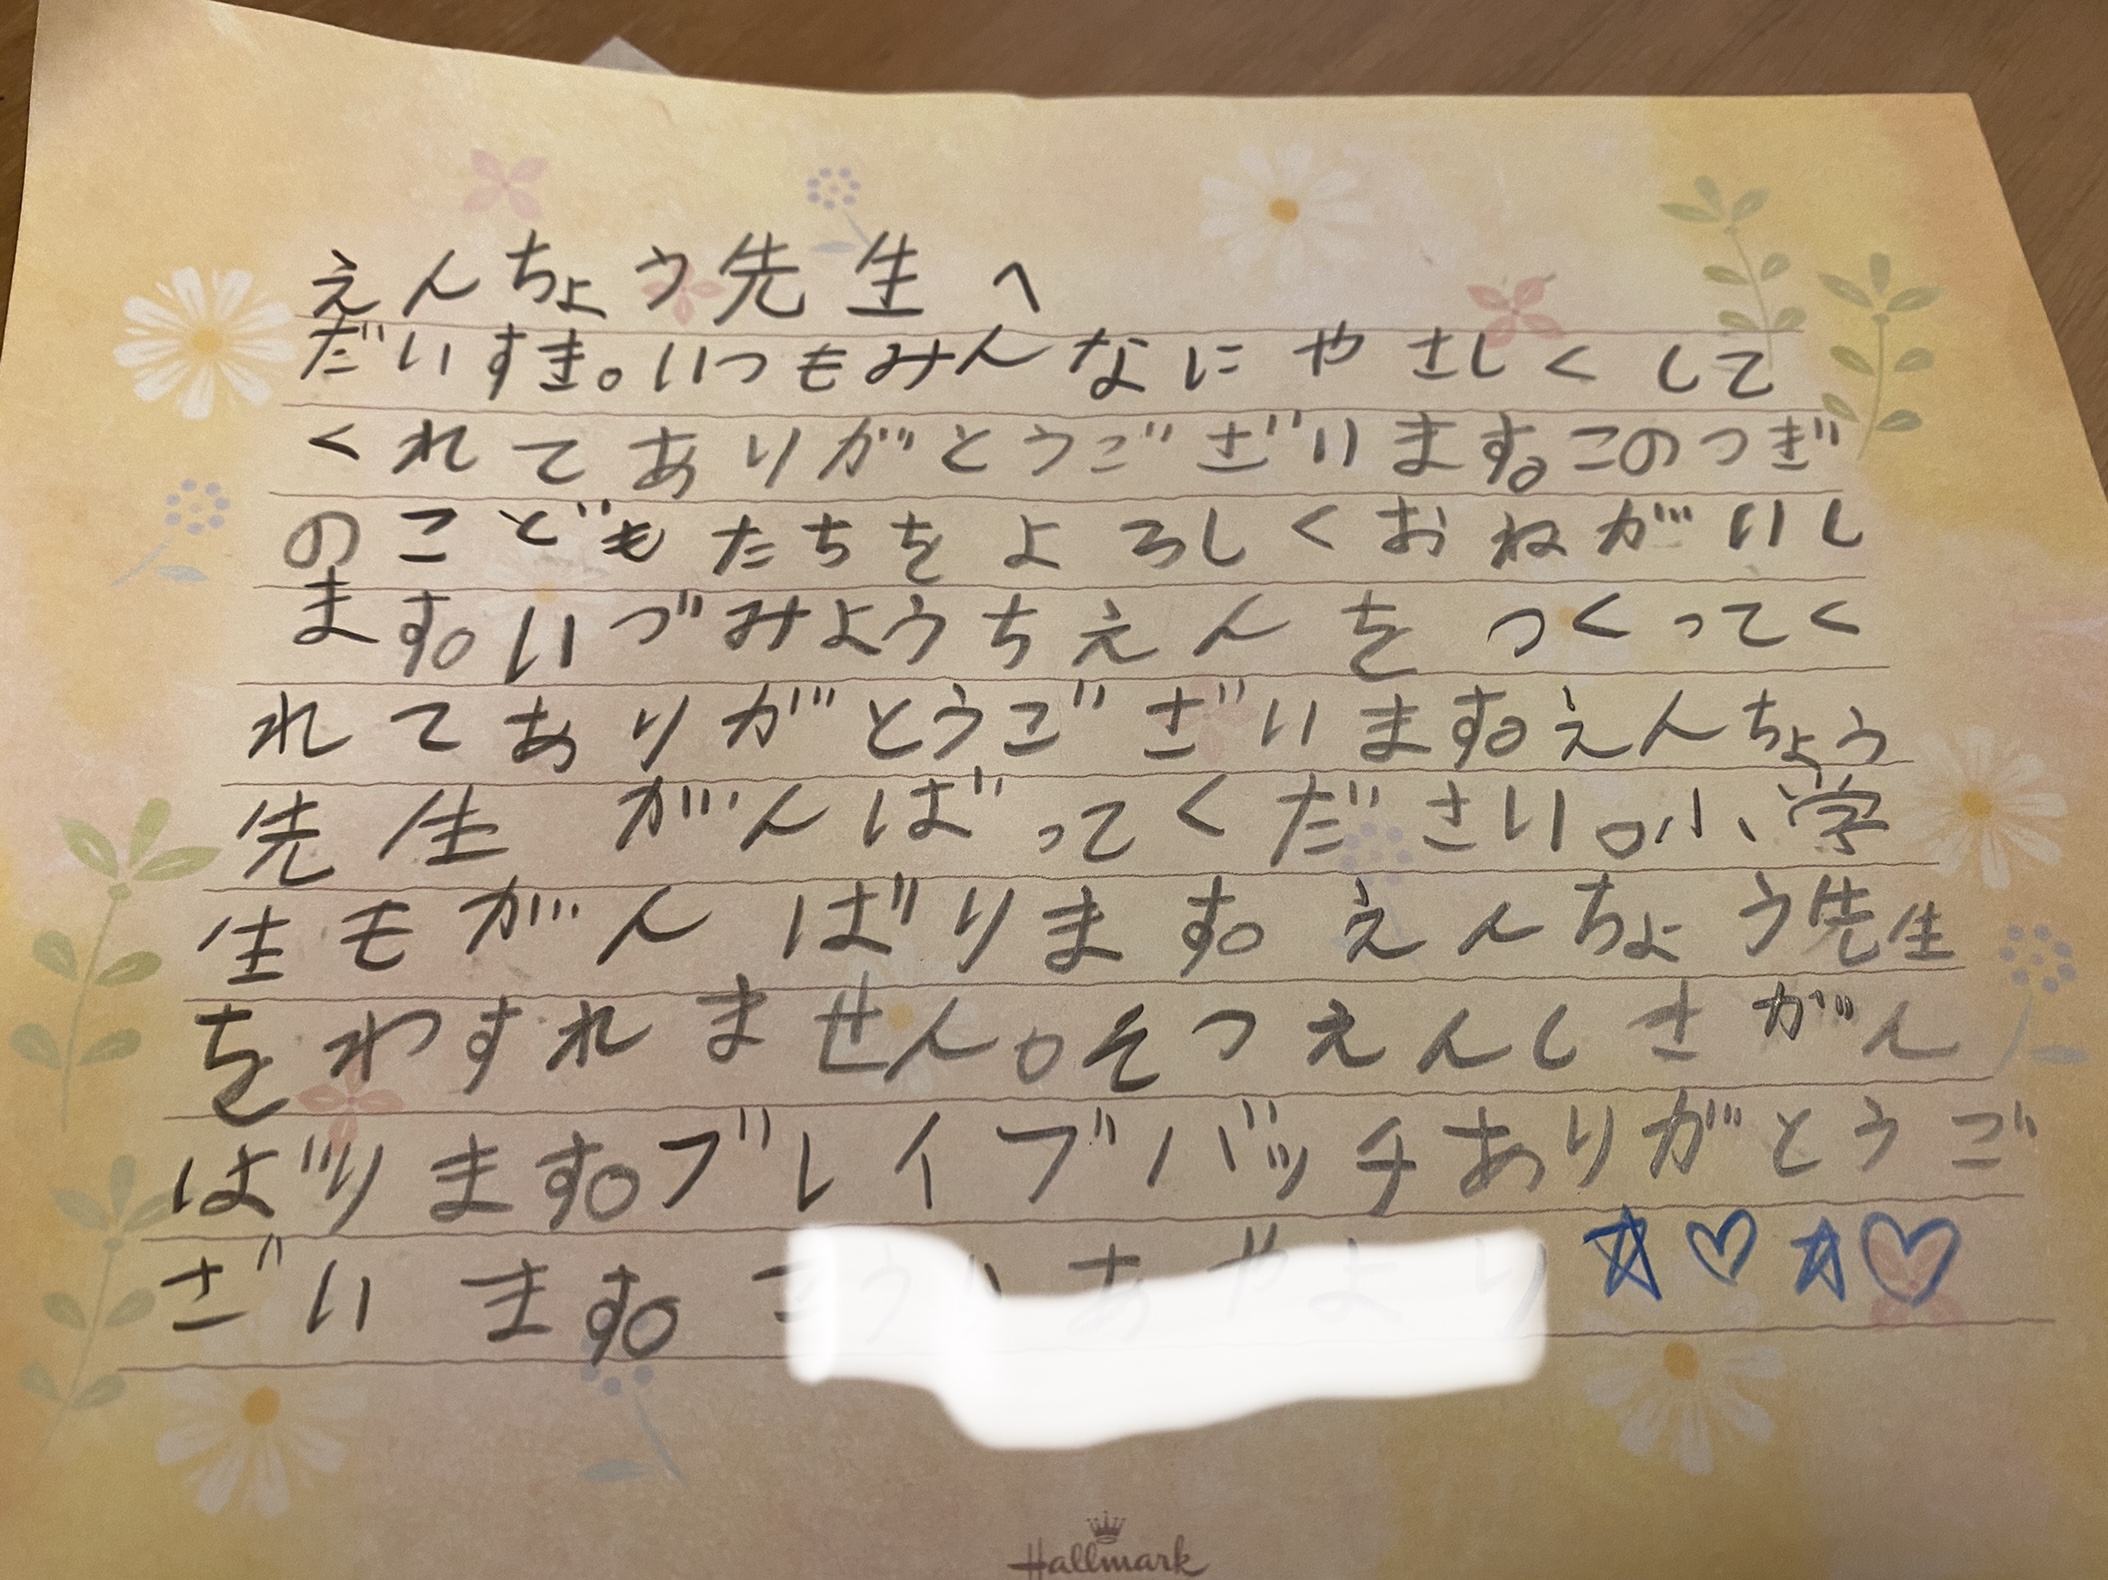 えんちょう先生へ
だいすき。いつもみんなにやさしくして
くれてありがとうございます。このつぎ
のこどもたちをよろしくおねがいし
ます。いづみようちえんをつくってく
れてありがとうございます。えんちょう
先生がんばってください。小学
生もがんばります。えんちょう先生
をわすれません。そつえんしさがん
ばります。ブレイブバッチありがとうご
ざいます。
Hallmark